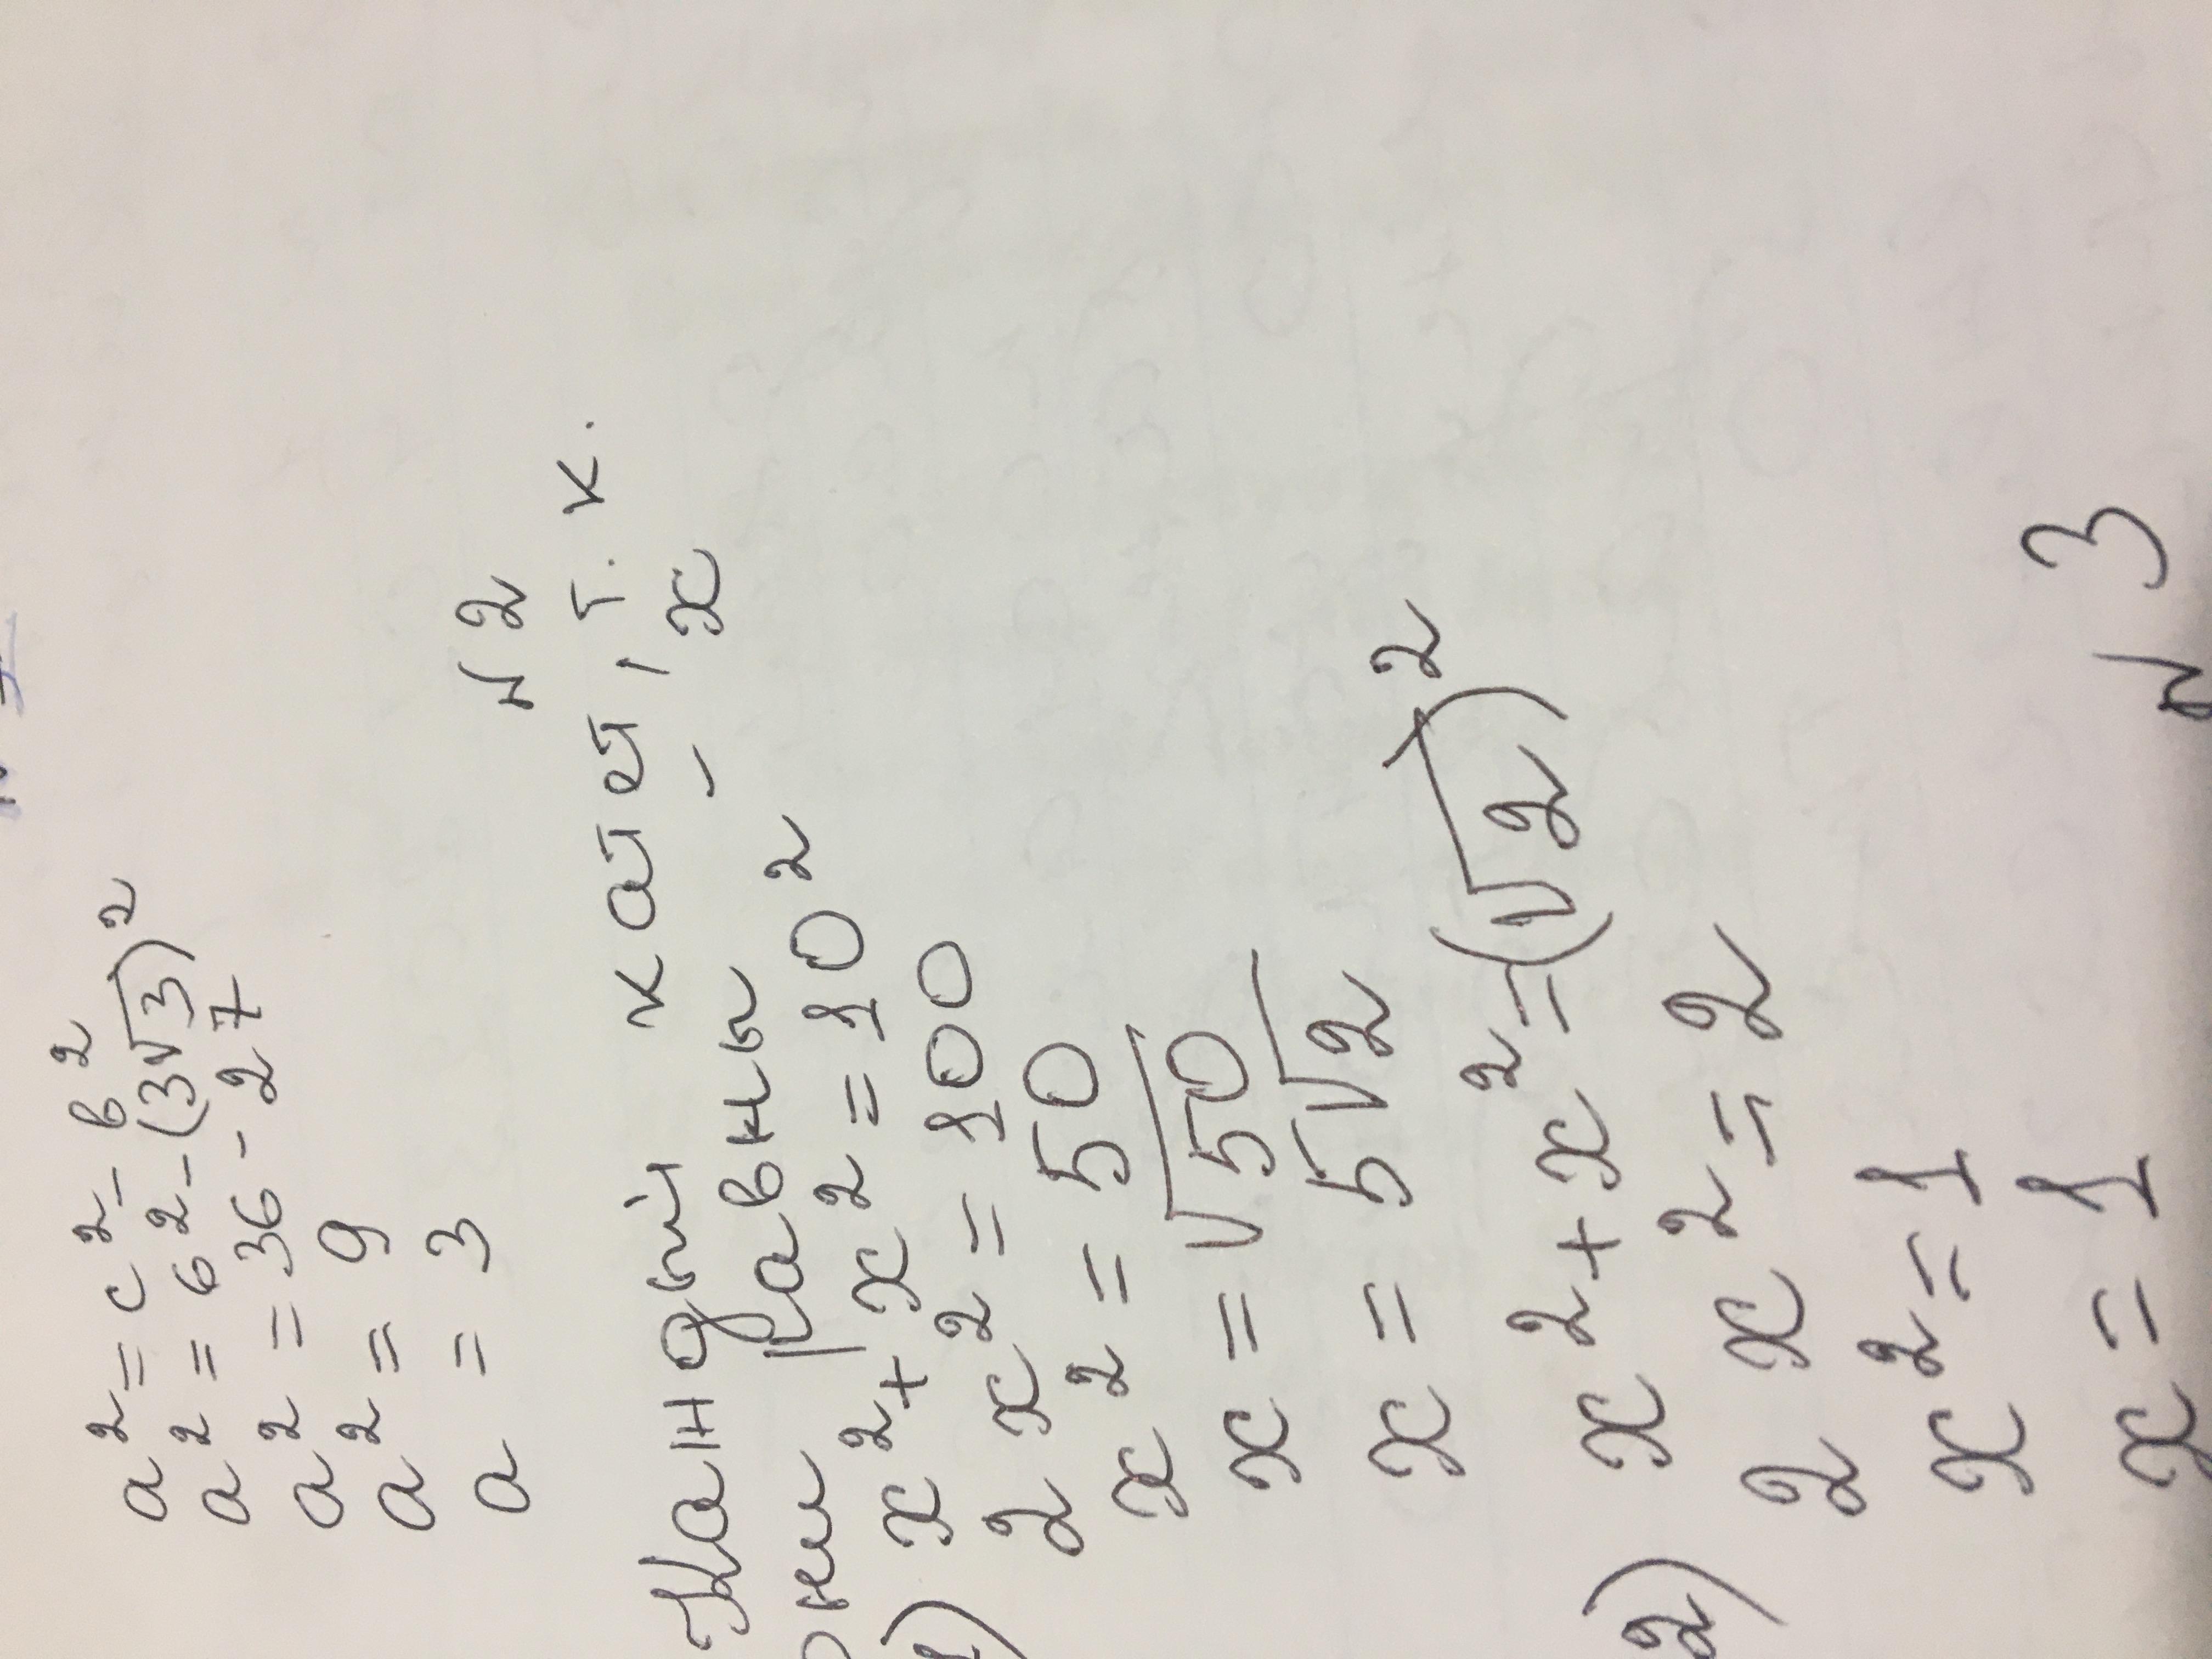 a² = c² - в²
a² = 6² - (3√3)²
a² = 36 - 27
a² = 9
a = 3
№ 2
Каждый катет, т. к.
они равны - x
1) x² + x² = 10²
2x² = 100
x² = 50
x = √50
x = 5√2
2) x² + x² = (√2)²
2x² = 2
x² = 1
x = 1
№ 3